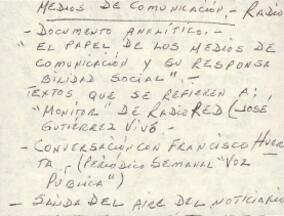 MEDIOS DE COMUNICACIÓN - RADIO
- DOCUMENTO ANALÍTICO. -
"EL PAPEL DE LOS MEDIOS DE
COMUNICACIÓN Y SU RESPONSA
BILIDAD SOCIAL". -
TEXTOS QUE SE REFIEREN A:
"MONITOR" DE RADIO RED (JOSÉ
GUTIÉRREZ VIVÓ. -
- CONVERSACIÓN CON FRANCISCO HUER
TA, (PERIÓDICO SEMANAL "VOZ
PÚBLICA")
- SALIDA DEL AIRE DEL NOTICIARIO